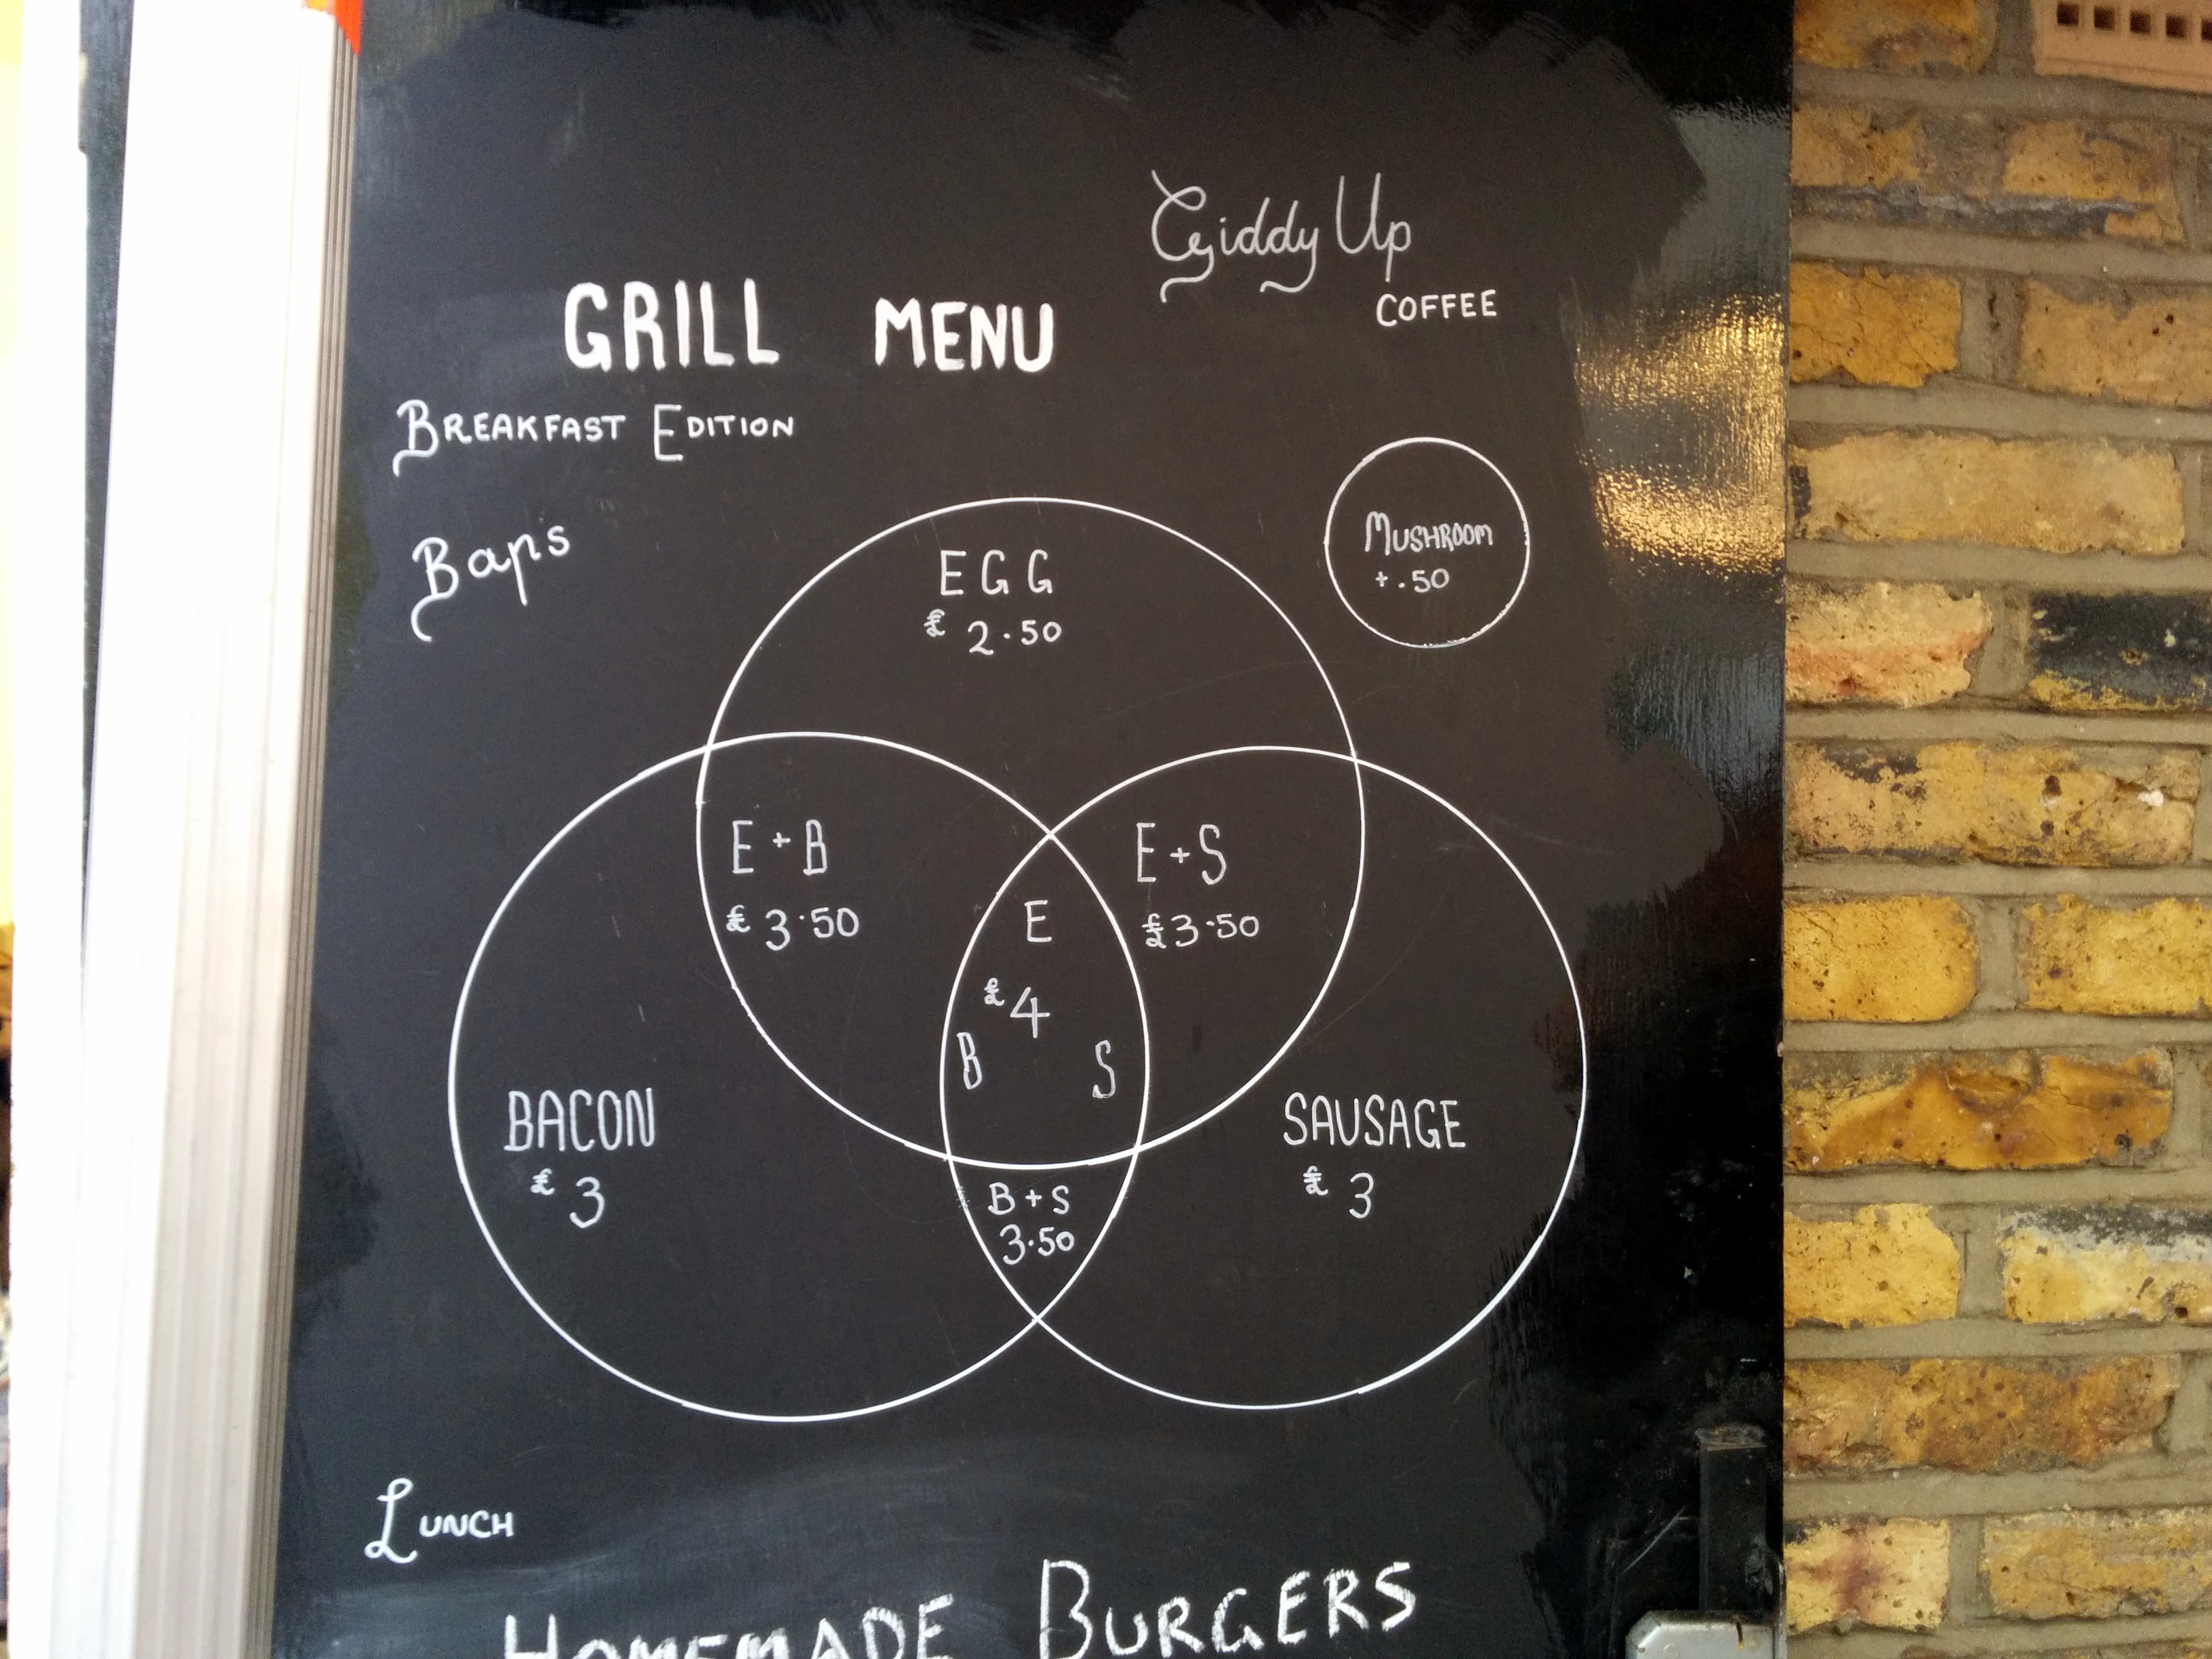 Giddy Up
COFFEE
GRILL MENU
BREAKFAST EDITION
Baps
MUSHROOM
+.50
EGG
£ 2.50
E+B
£ 3.50
E+S
£3.50
E
£4
B S
BACON
£ 3
SAUSAGE
£ 3
B+S
3.50
LUNCH
HOMEMADE BURGERS